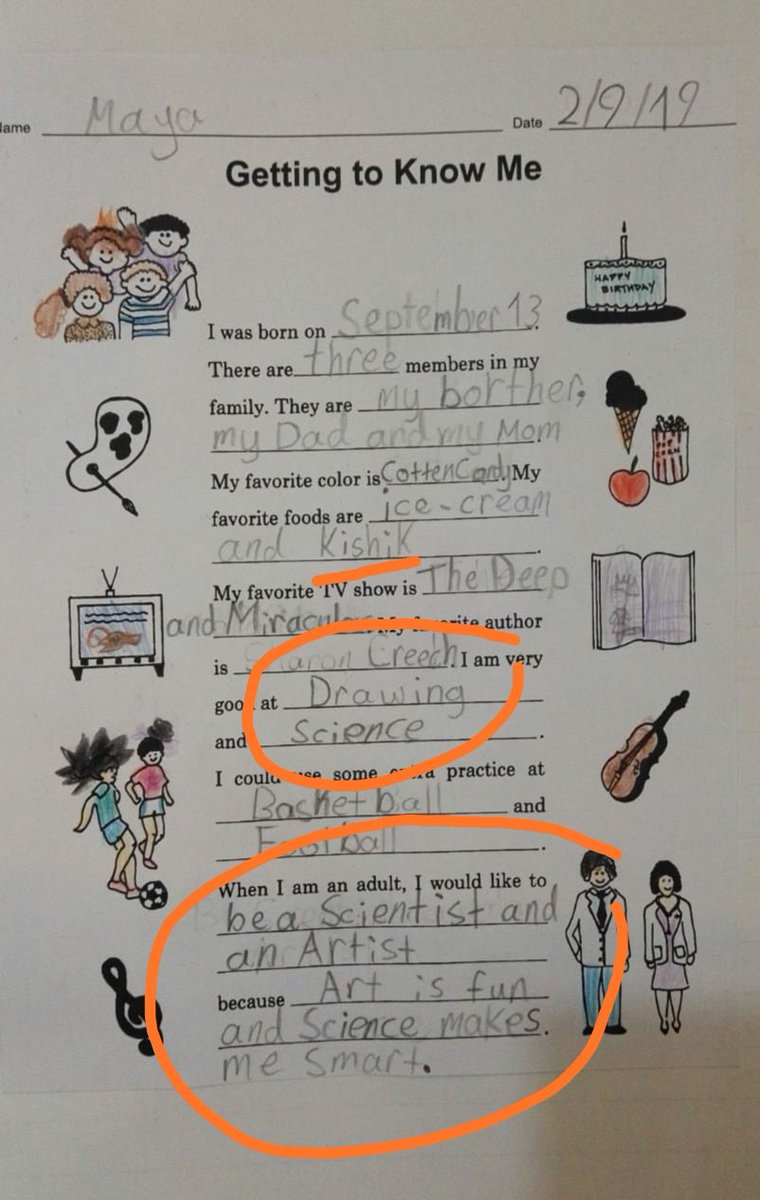 Name Maya Date 2/9/19
Getting to Know Me
HAPPY
BIRTHDAY
I was born on September 13.
There are three members in my
family. They are my borther,
my Dad and my Mom
My favorite color is CottenCandy. My
favorite foods are ice-cream
and Kishik.
POP
CORN
My favorite TV show is The Deep
and Miraculas. My favorite author
is Sharon Creech. I am very
good at Drawing
and Science.
I could use some extra practice at
Basketball and
Football.
When I am an adult, I would like to
be a Scientist and
an Artist
because Art is fun
and Science makes.
me smart.